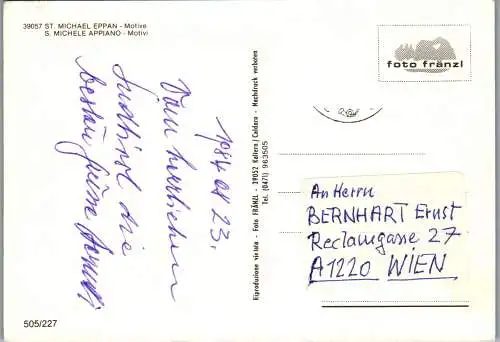 39057 ST. MICHAEL EPPAN - Motive
S. MICHELE APPIANO - Motivi
1984 08 23.
Vom herrlichen
Südtirol die
besten Grüsse
505/227
Riproduzione vietata - Foto FRÄNZL - 39052 Kaltern / Caldaro - Nachdruck verboten
Tel. (0471) 963505
foto fränzl
An Herrn
BERNHART Ernst
Reclamgasse 27
A1220 WIEN